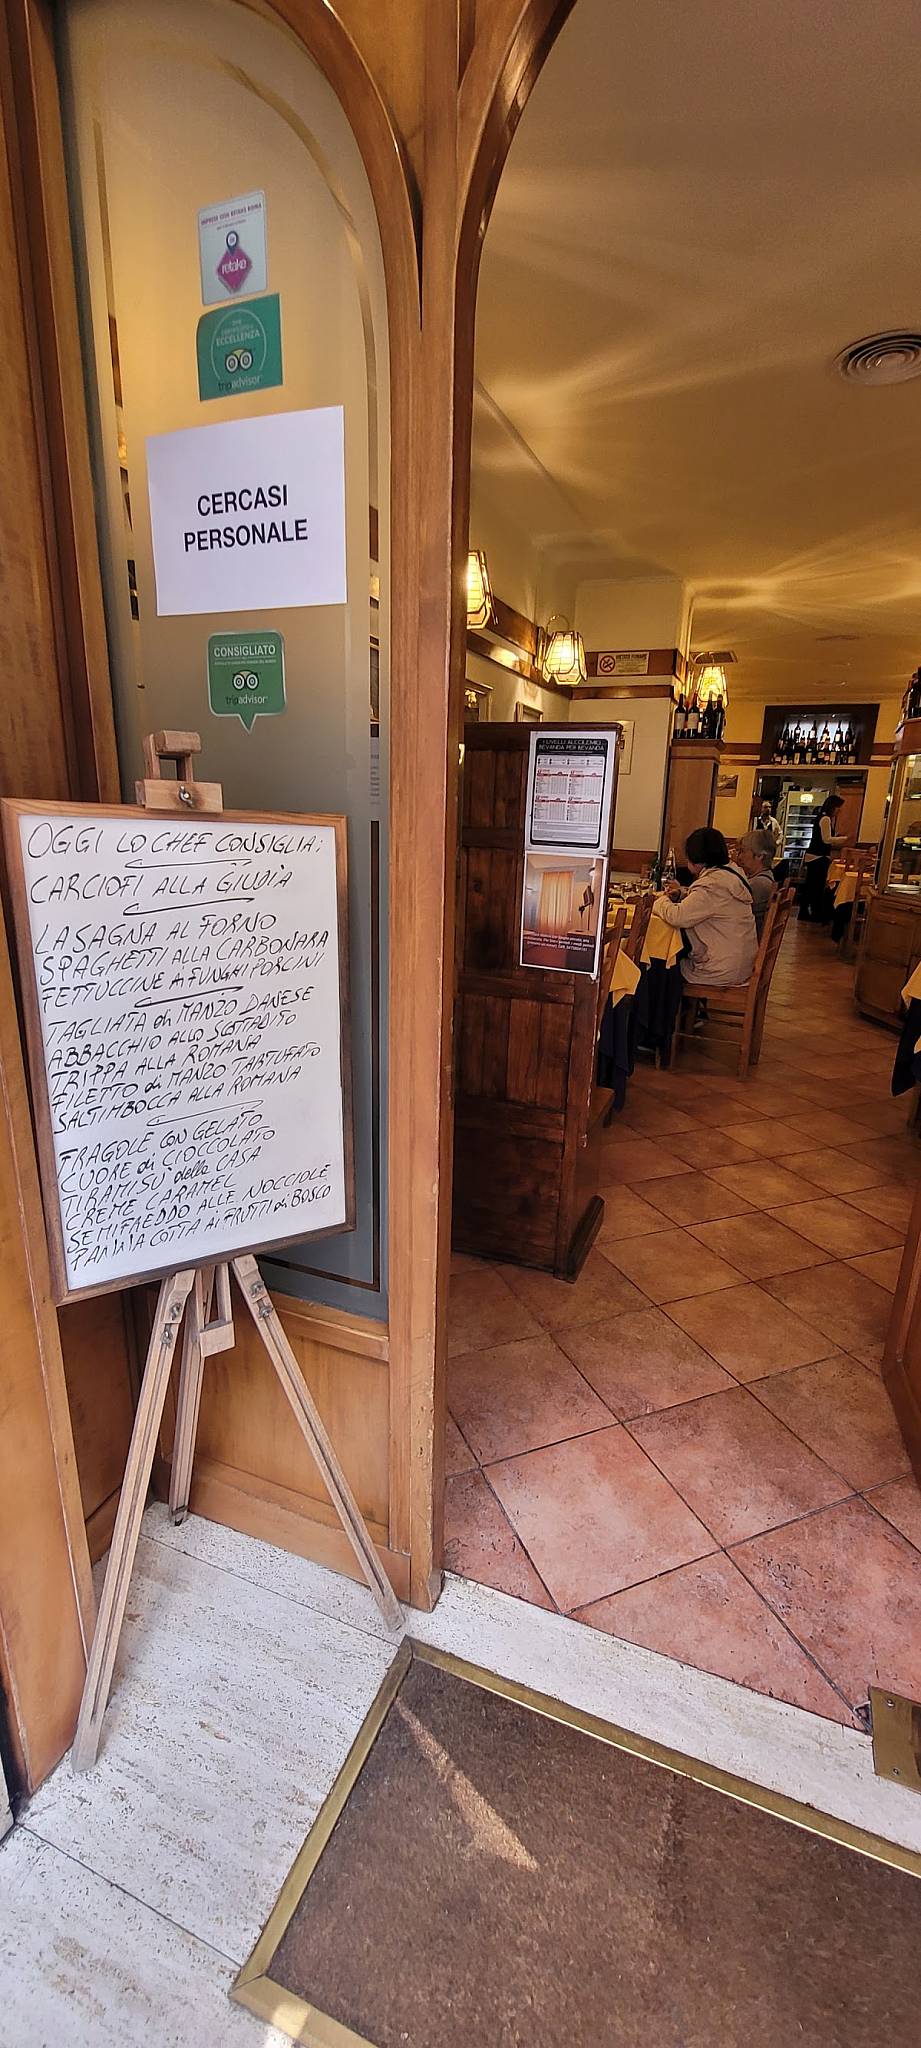 retake
ECCELLENZA
tripadvisor
CERCASI
PERSONALE
CONSIGLIATO
tripadvisor
OGGI LO CHEF CONSIGLIA:
CARCIOFI ALLA GIUDIA
LASAGNA AL FORNO
SPAGHETTI ALLA CARBONARA
FETTUCCINE AI FUNGHI PORCINI
TAGLIATA di MANZO DANESE
ABBACCHIO ALLO SCOTTADITO
TRIPPA ALLA ROMANA
FILETTO di MANZO TARTUFATO
SALTIMBOCCA ALLA ROMANA
FRAGOLE CON GELATO
CUORE di CIOCCOLATO
TIRAMISU della CASA
CREME CARAMEL
SEMIFREDDO ALLE NOCCIOLE
PANNA COTTA AI FRUTTI di BOSCO
VIETATO FUMARE
BEVANDA PER BEVANDA